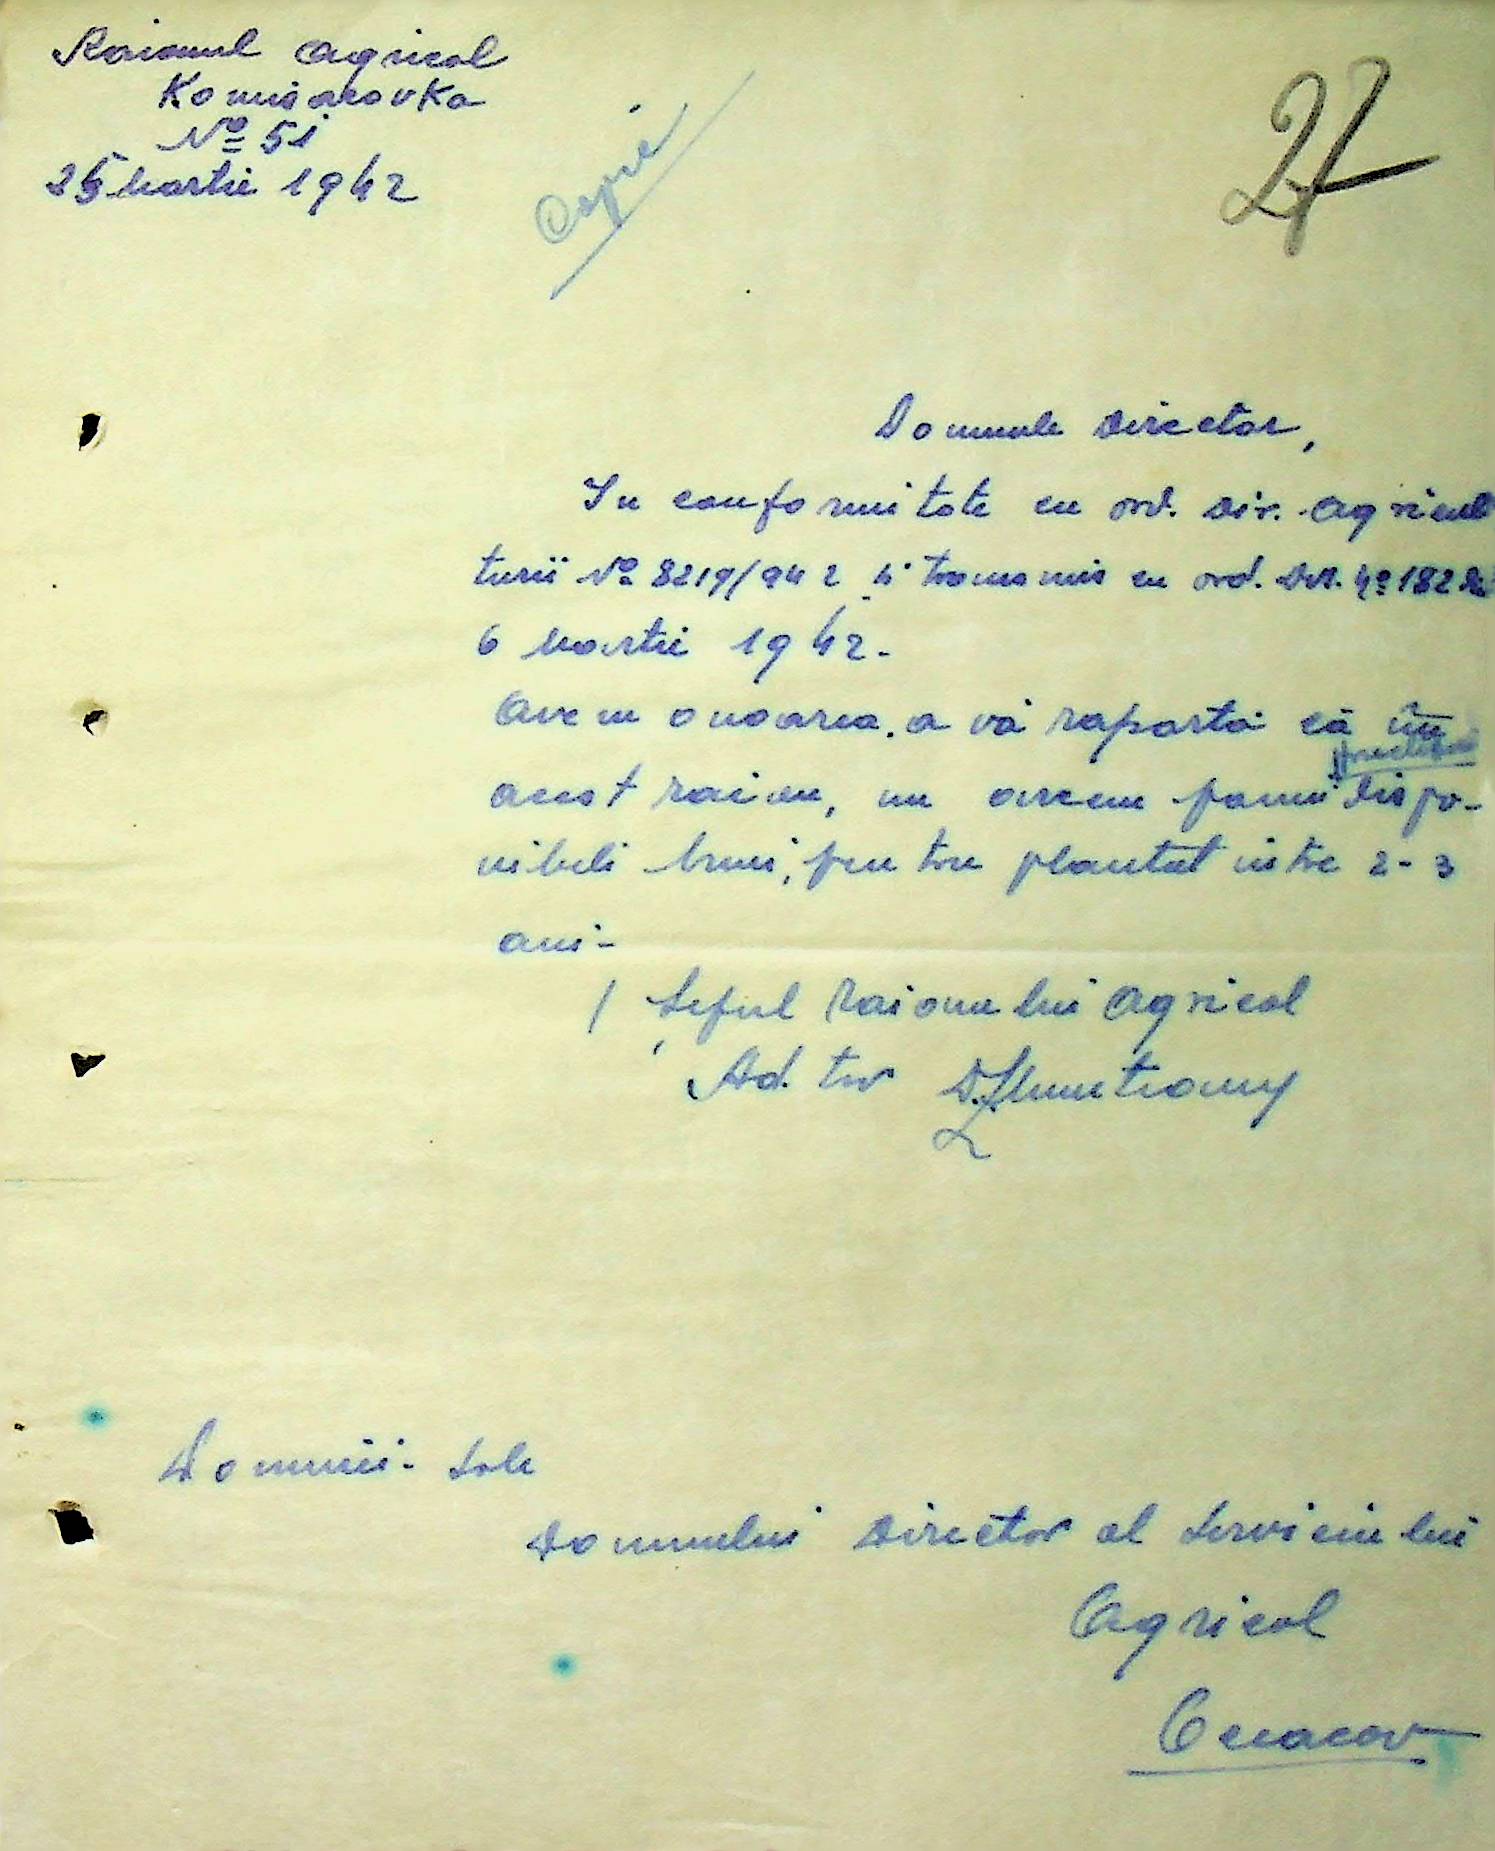 Raionul Agricol
Komisarovka
No 51
25 Martie 1942
Copie
27
Domnule Director,
In conformitate cu ord. Dir. Agricul
turii No 8219/942 transmis cu ord. No 182 din
6 Martie 1942.-
Avem onoarea a vă raporta că în
acest raion, nu avem pomi fructiferi dispo-
nibili buni, pentru plantat între 2-3
ani-
Șeful raionului Agricol
D. Munteanu
Domnii-Sale
Domnului Director al Serviciului
Agricol
Oceacov